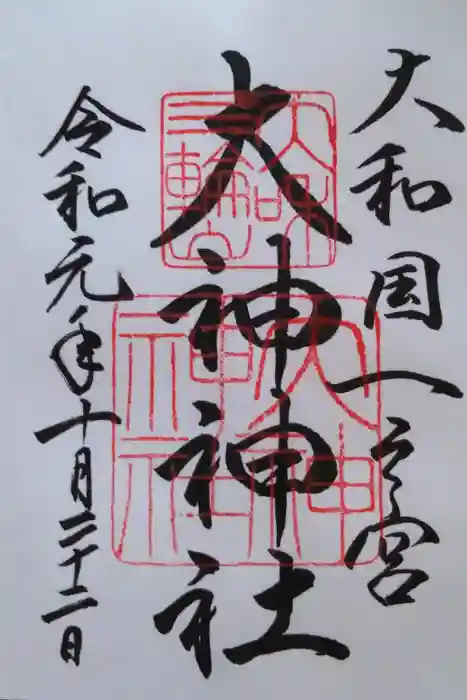 大和国一之宮
大神神社
令和元年十月二十二日
大和
三輪山
大神
神社